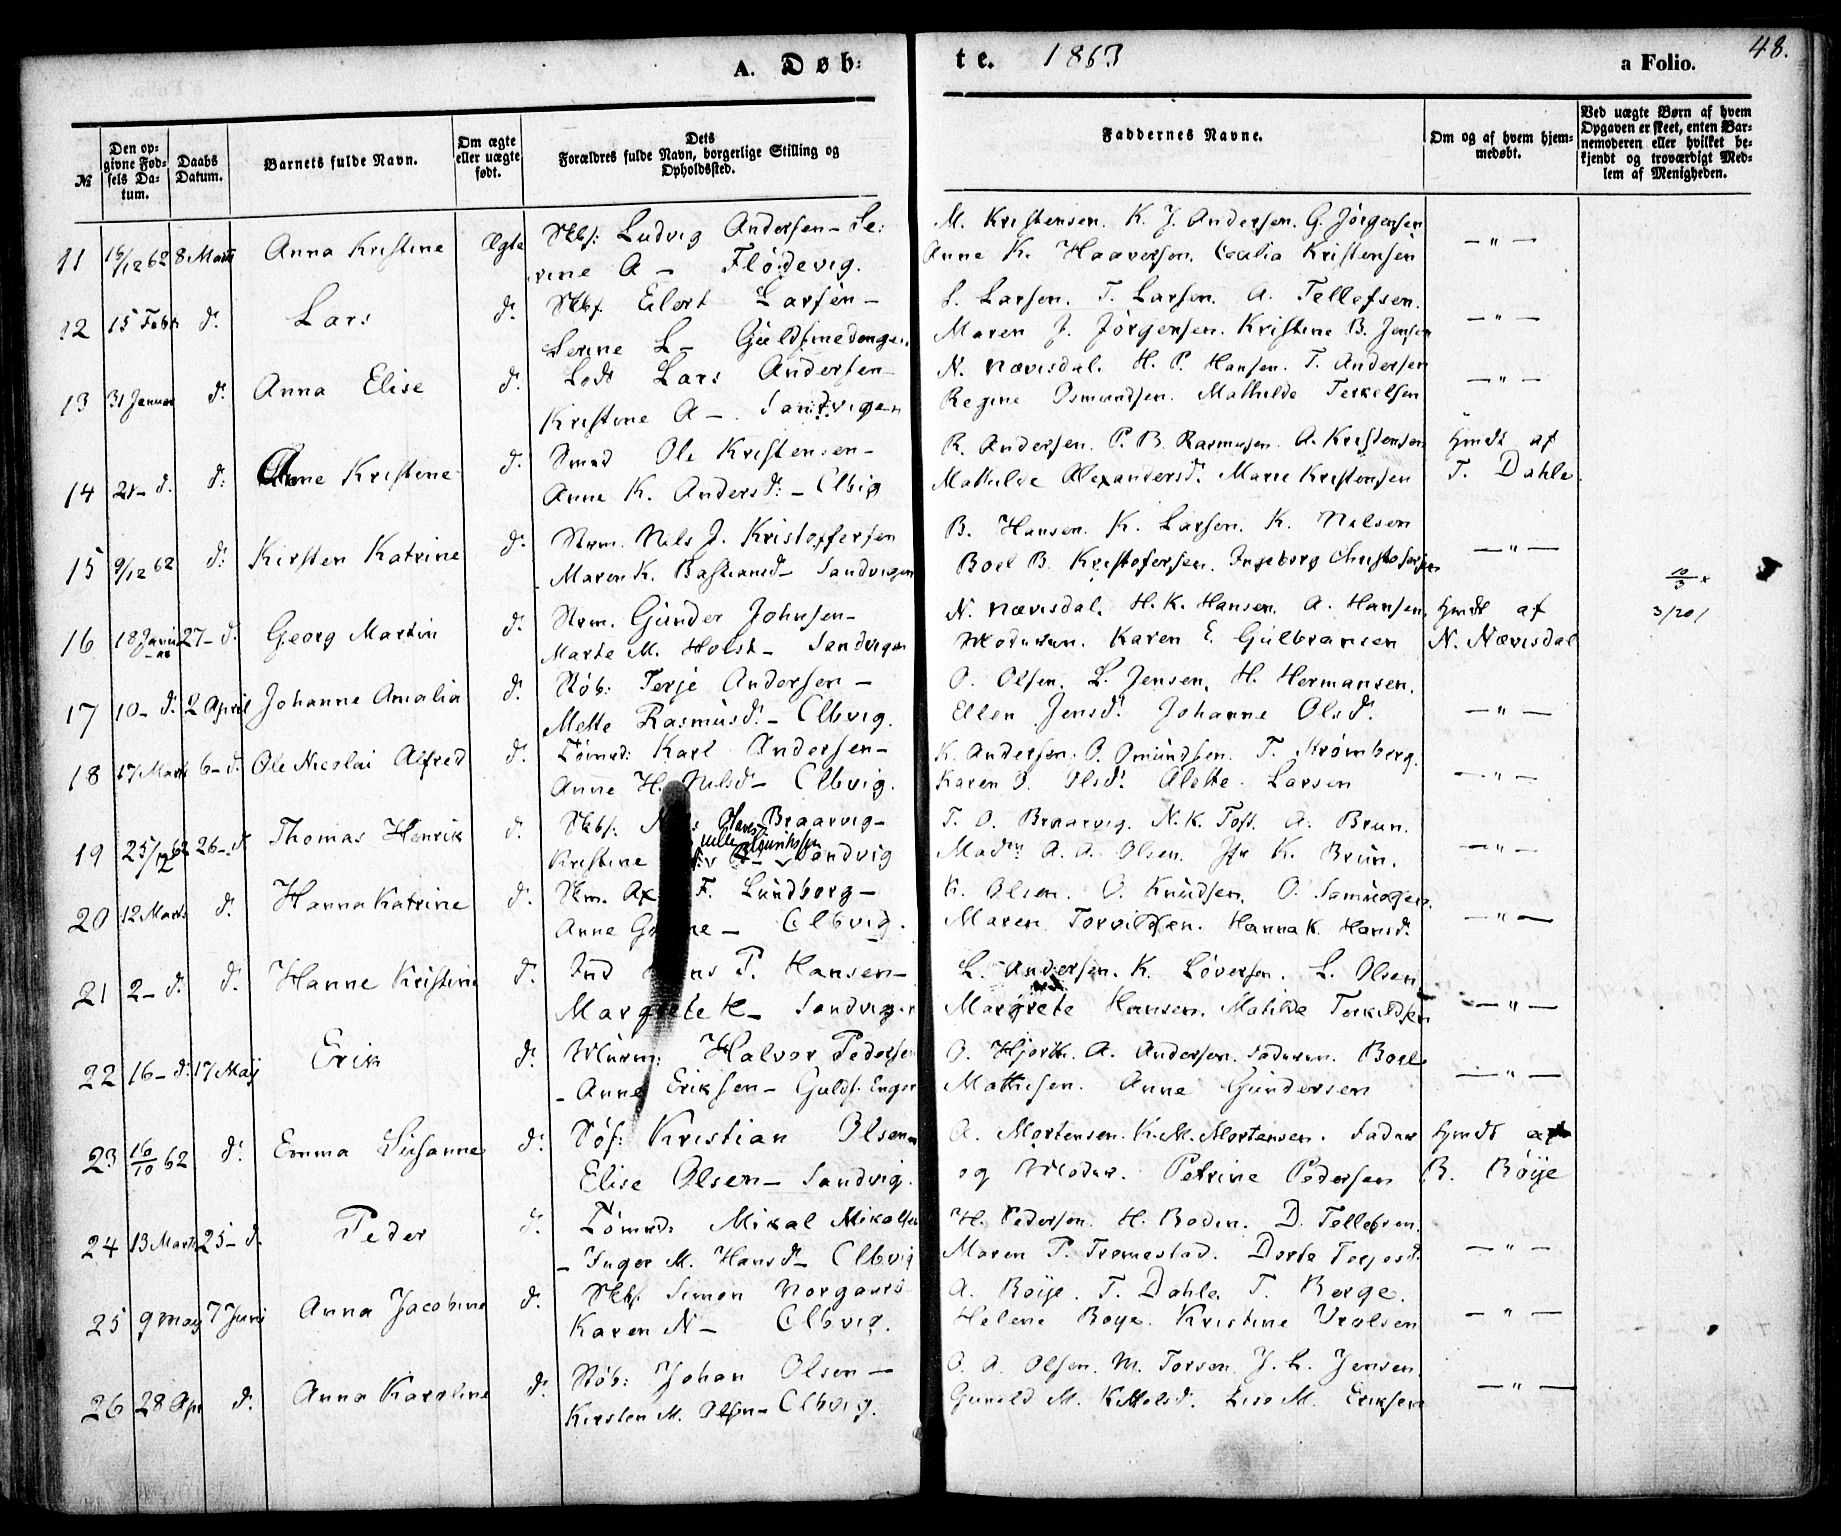 A. Døb:
te. 1863 a Folio. 48.
№ Den opgivne Fødsels Datum. Daabs Datum. Barnets fulde Navn. Om ægte eller uægte født. Dets Forældres fulde Navn, borgerlige Stilling og Opholdssted.
Faddernes Navne. Om og af hvem hjemmedøbt. Ved uægte Børn af hvem Opgaven er skeet, enten Barnemoderen eller hvilket bekjendt og troværdigt Medlem af Menigheden.
11 16/12 62 8 Marts Anna Kristine Ægte Skbf: Ludvig Andersen – Se:
rine A – Flödevig.
M. Kristensen. K. J. Andersen. G. Jörgensen
Anne K. Haaversen. Cecilia Kristensen — " —
12 15 Febr d: Lars d: Skbf. Eilert Larsen –
Serine L – Guldsmedengen.
L. Larsen. T. Larsen. A. Tellefsen.
Maren J. Jörgensen. Kristine B. Jensen — " —
13 31 Januar d: Anna Elise d: Lods Lars Andersen –
Kristine A – . Sandvigen
N. Nævisdal. H. P. Hansen. T. Andersen
Regine Osmundsen. Mathilde Terkelsen — " —
14 21 – d. d: Anne Kristine d: Smed Ole Kristensen –
Anne K. Andersd: – Elbvig
R. Andersen. P. B. Rasmusen. A. Kristensen
Mathilde Alexandersd: Marie Kristensen
hjmdt af
T. Dahle.
15 9/12 62 d: Kirsten Katrine d: Strm. Nils J. Kristoffersen
Maren K. Bastiansd – Sandvigen
B. Hansen. K. Larsen. K. Nilsen
Boel B. Kristofersen. Ingeborg Christofersen — " —
16 18 Januar 27 – d. Georg Martin d: Strm. Gunder Johnsen –
Marte M. Holst – Sandvigen
N. Nævisdal. H. K. Hansen. A. Hansen,
Moderen. Karen E. Gulbransen
hjmdt af
N. Nævisdal
10/3
3/20
17 10 – d. 2 April Johanne Amalia d: Støb: Terje Andersen –
Mette Rasmusd: – Elbvig.
O. Olsen. L. Jensen. H. Hermansen.
Ellen Jensd: Johanne Olsd: — " —
18 17 Marts 6 – d. Ole Nicolai Alfred d: Tömmd: Karl Andersen –
Anne H. Nilsd – Elbvig.
K. Andersen. O. Omundsen. T. Strømberg.
Karen O. Olsd: Alette Larsen — " —
19 25/12 62 26 – d. Thomas Henrik d. Skbf: Braarvig –
Kristine Sandvig
T. O. Braarvig. N. K. Toft. A. Brun.
Madm A. A. Olsen. Jfr K. Brun. — " —
20 12 Marts d. Hanna Katrine d: Stm. F. Lundborg –
Anne – Elbvig.
K. Olsen. O. Knudsen. O. Samuelsen.
Maren Torvildsen. Hanna K. Hansd. — " —
21 2 – d. d. Hanne Kristine d: Ind P. Hansen –
Margrete H – Sandvigen
L. Andersen. K. Löversen. L. Olsen
Margrete Hansen. Matilde Terkildsen — " —
22 16 – d: 17 Maij Erik d: Murm: Halvor Pedersen
– Anne Eriksen – Guldf. Engen
O. Hjorth. A. Andersen. Faderen. Boele
Mathisen. Anne Gundersen — " —
23 16/10 62 d: Emma Susanne d: Söf: Kristian Olsen
Elise Olsen – Sandvig.
A. Mortensen. K. M. Mortensen. Fader
og Moder. Petrine Pedersen
hjmdt af
B. Böije
24 13 Marts 25 – d. Peder d. Tömmd: Mikal Mikalsen
– Inger M. Hansd – Elbvig
H. Pedersen. H. Boden. D. Tellefsen.
Maren P. Tromestad. Dorte Terjesd. — " —
25 9 May 7 Juni Anna Jacobine d. Skbf. Simon Norgaard
Karen N – Elbvig.
A. Böije. T. Dahle. T. Berge.
Helene Boye. Kristine Uvalsen — " —
26 28 Apr d. Anna Karoline d: Støb: Johan Olsen –
Kirsten M. Olsen – Elbvig.
O. A. Olsen. M. Torsen. J. L. Jensen.
Gunild M. K. Molsd. Lise M. Eriksen — " —